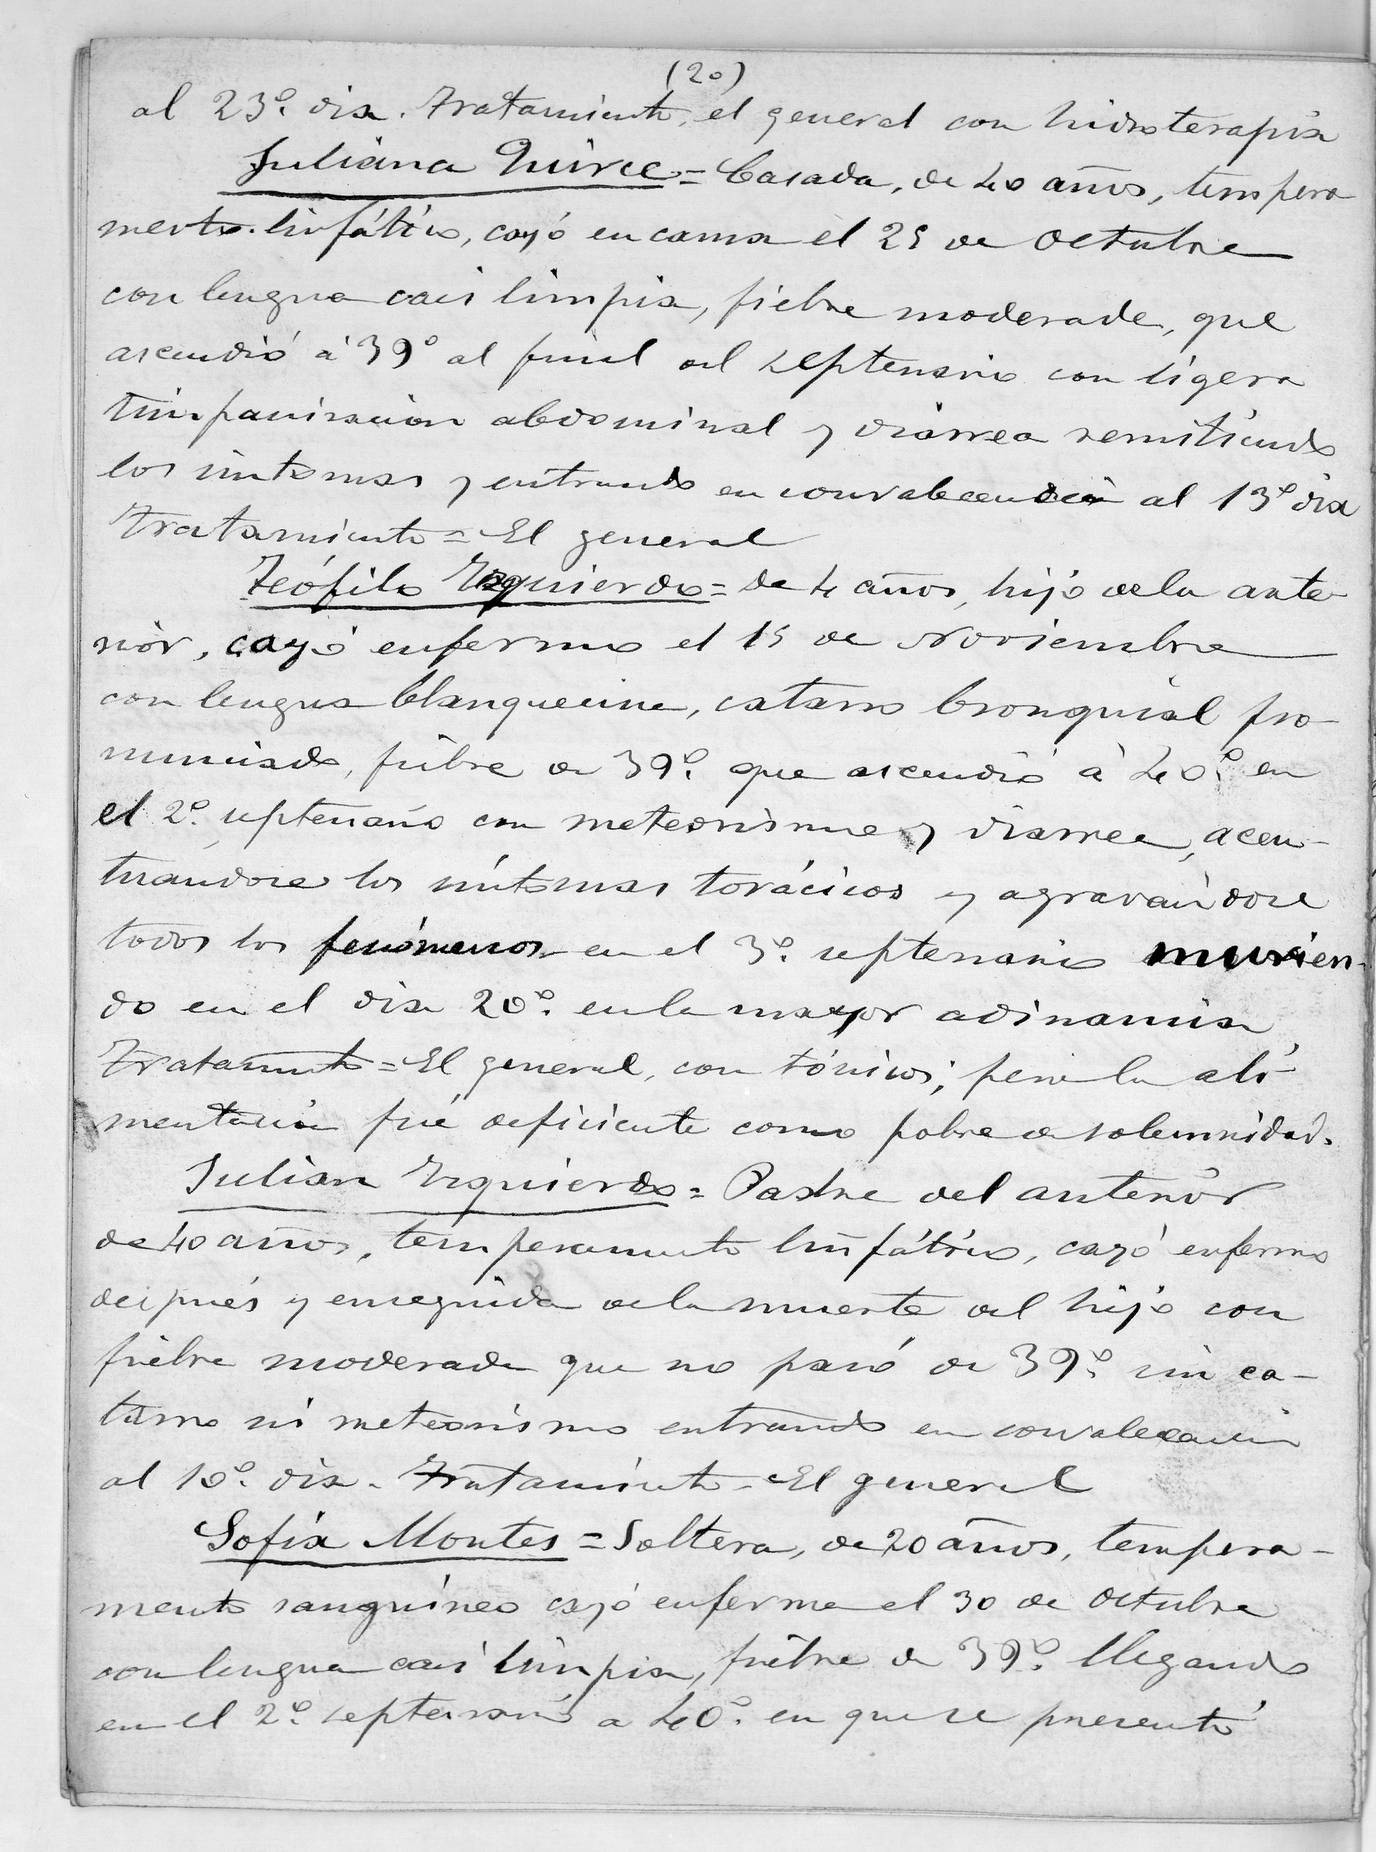 (20)
al 23º. dia. Tratamiento, el general con hidroterapia
Juliana Quirce = Casada, de 40 años, tempera
mento linfático, cayó en cama el 25 de Octubre
con lengua casi limpia, fiebre moderada, que
ascendió á 39º al final del septenario con ligera
timpanizacion abdominal y diarrea remitiendo
los sintomas y entrando en convalecencia al 13º dia
Tratamiento = El general
Teófilo Izquierdo = de 4 años, hijo de la ante-
rior, cayó enfermo el 15 de Noviembre
con lengua blanquecina, catarro bronquial pro-
nunciado, fiebre de 39º. que ascendió á 40º. en
el 2º. septenario con meteorismo y diarrea, acen-
tuandose los síntomas torácicos y agravandose
todos los fenómenos en el 3º. septenario murien-
do en el dia 20º. en la mayor adinamia
Tratamiento = El general, con tónicos; pero la ali-
mentación fué deficiente como pobre de solemnidad.
Julian Izquierdo = Padre del anterior
de 40 años, temperamento linfático, cayó enfermo
después y enseguida de la muerte del hijo con
fiebre moderada que no pasó de 39º. sin ca-
tarro ni meteorismo entrando en convalecencia
al 10º. dia. Tratamiento - El general
Sofia Montes = Soltera, de 20 años, tempera-
mento sanguíneo cayó enferma el 30 de Octubre
con lengua casi limpia, fiebre de 39º. llegando
en el 2º. septenario a 40º. en que se presentó